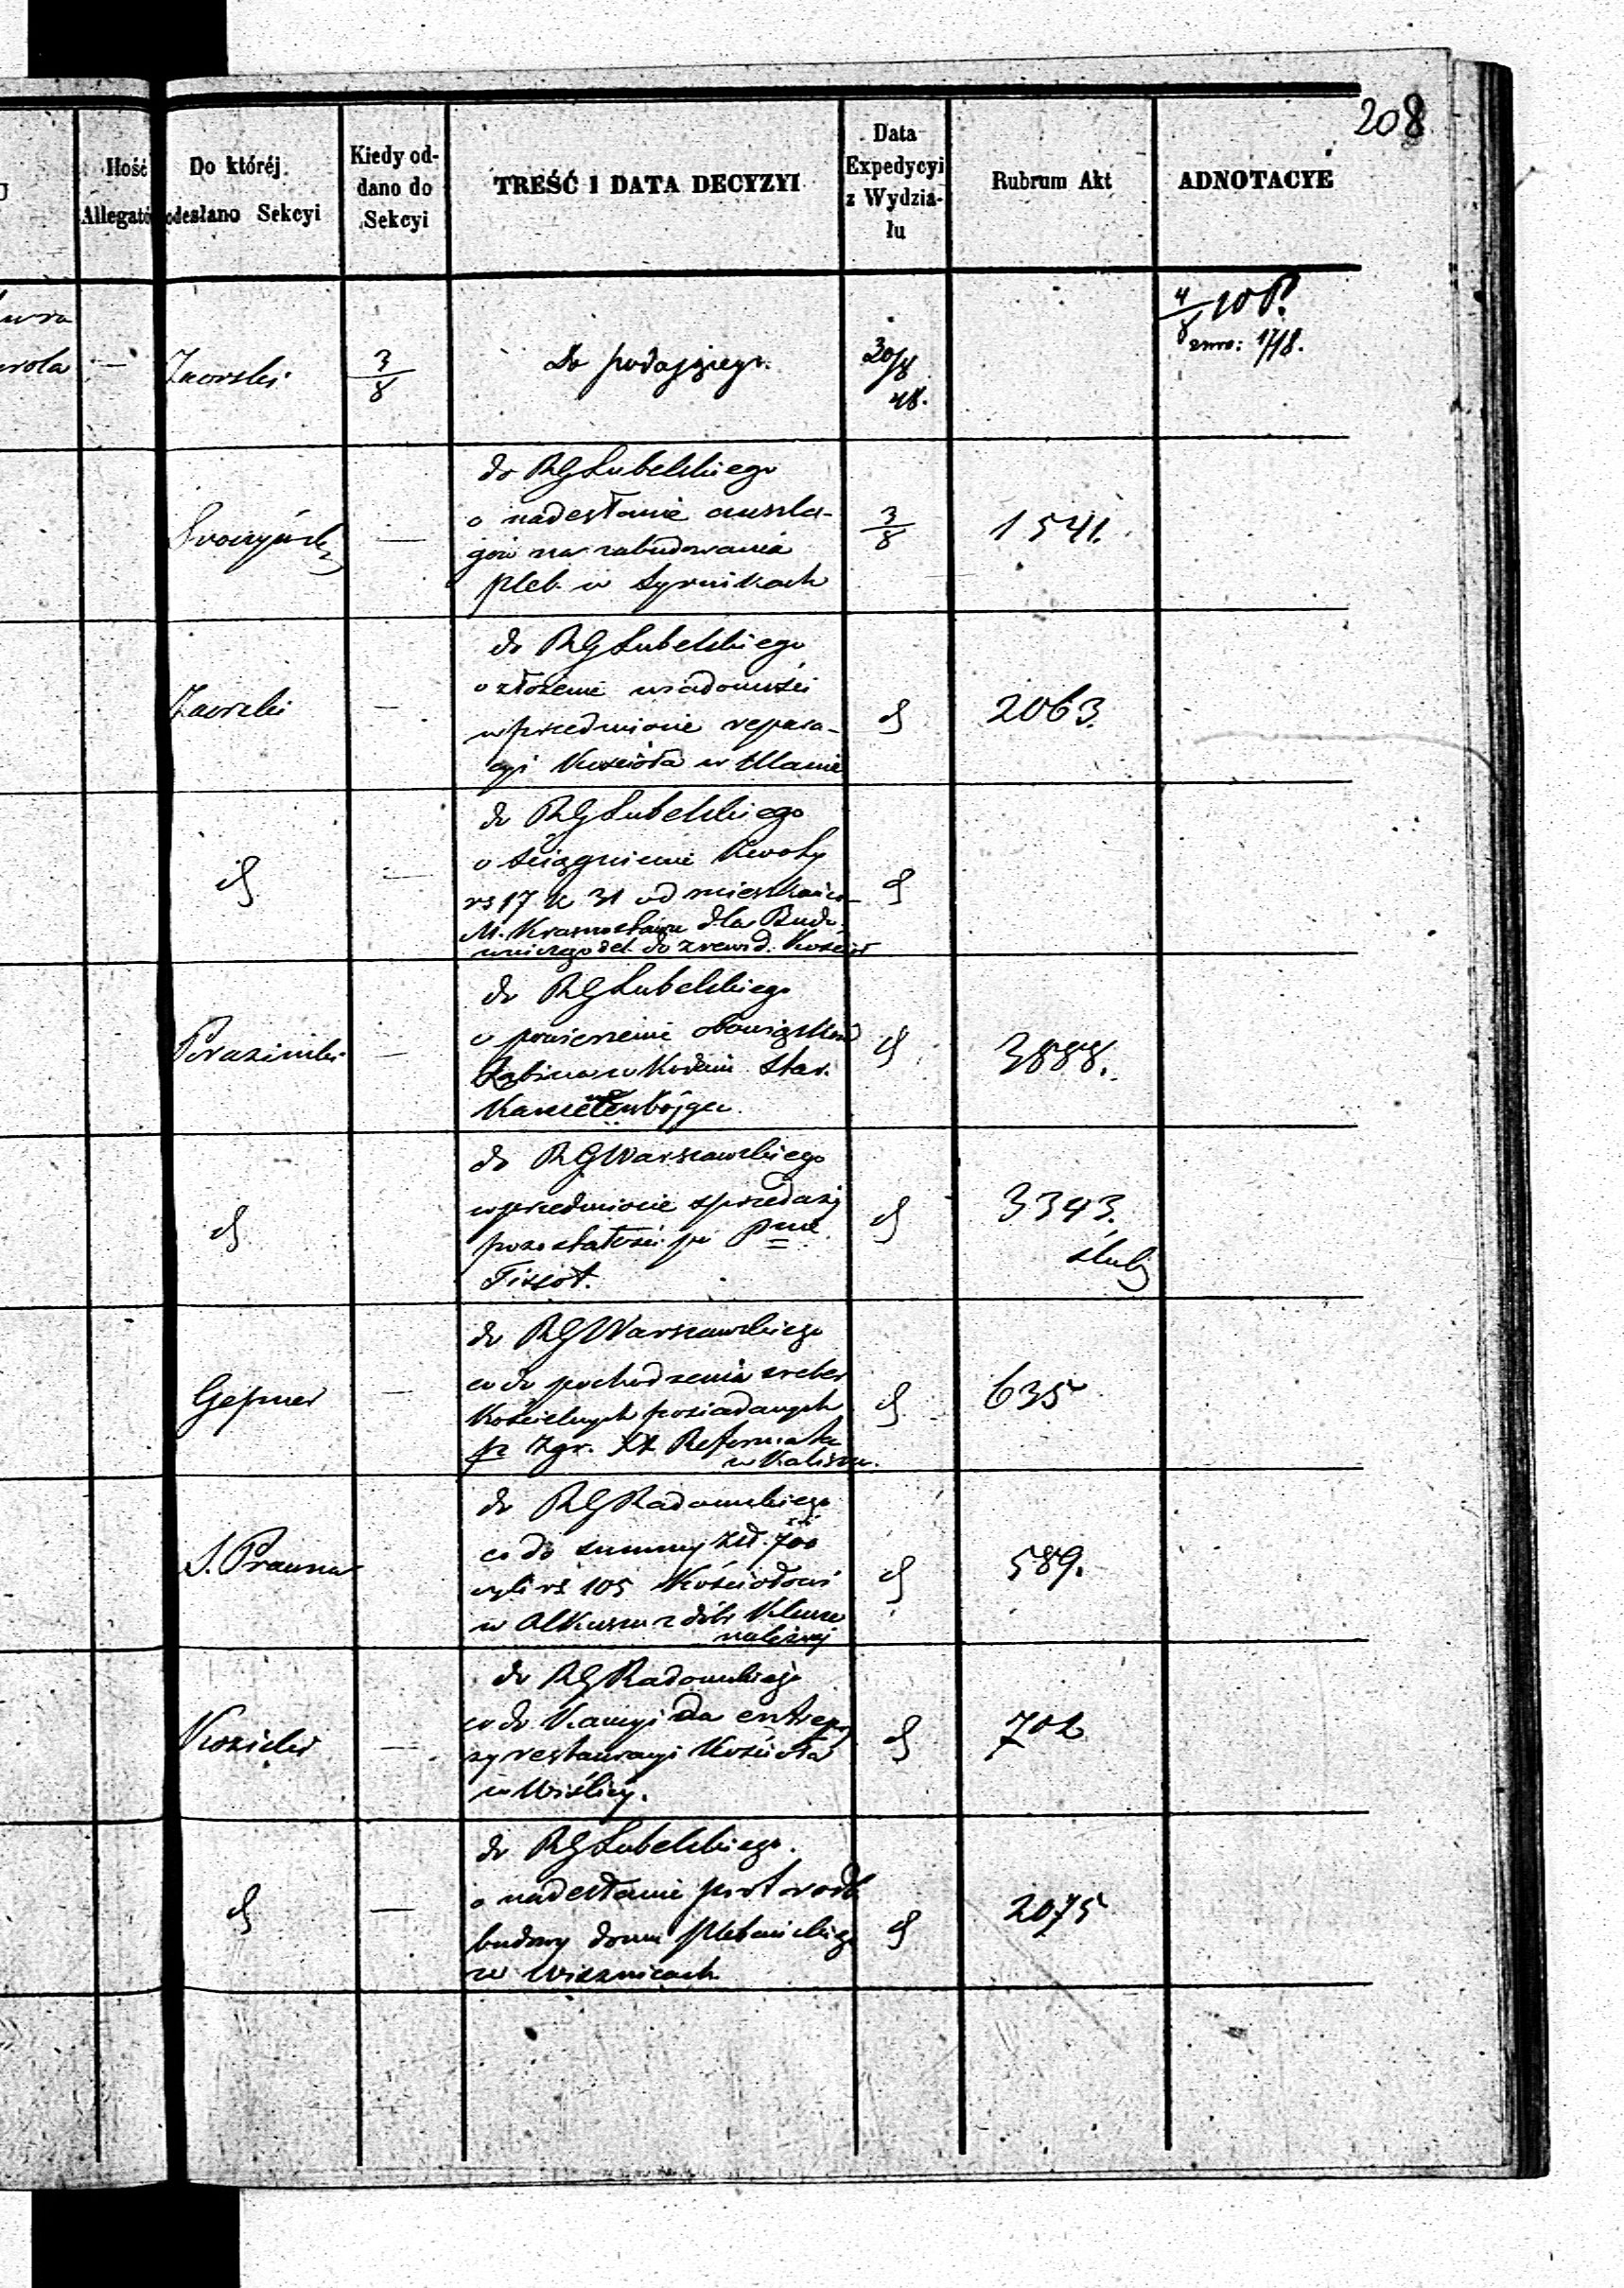 208
Ilość
Allegató
Do któréj
odesłano Sekcyi
Kiedy od-
dano do
Sekcyi
TREŚĆ I DATA DECYZYI
Data
Expedycyi
z Wydzia-
łu
Rubrum Akt
ADNOTACYE
—
Zaorski
3/8
Do podającego.
30/8
48.
4/8 10
zwro: 17/8.
—
do RG Lubelskiego
o nadesłanie anszla-
gów na zabudowania
pleb. w Syrnikach
3/8
1541.
Zaorski
—
do RG Lubelskiego
o złożenie wiadomości
w przedmiocie repara-
cyi Kościoła w Ulanie
d
2063.
d
—
do RG Lubelskiego
o ściągnienie Kwoty
rs 17 k 31 od mieszkańców
M. Krasnostawu dla Budo-
wniczego del. do zrewid. Kościoł
d
—
do RG Lubelskiego
o powierzenie obowiązków
Rabina w Kodniu Star.
d
3888.
d
do RG Warszawskiego
w przedmiocie sprzedaży
pozostałości po
Tissot.
d
3343.
śluby
—
do RG Warszawskiego
co do pochodzenia sreber
Kościelnych posiadanych
pz Zgr. XX Reformatów
w Kaliszu.
d
635
S. Prauna
—
do RG Radomskiego
co do summy złł. 700
czyli rs 105 Kościołowi
w Olkuszu z dóbr Klucze
należnej
d
589.
Kozicki
—
do RG Radomskiego
co do Kaucyi da entrepry
zy restauracyi Kościoła
w Wiślicy.
d
702
d
—
do RG Lubelskiego.
o nadesłanie prot. rodb
budowy domu plebańskiego
w Wisznicach
d
2075